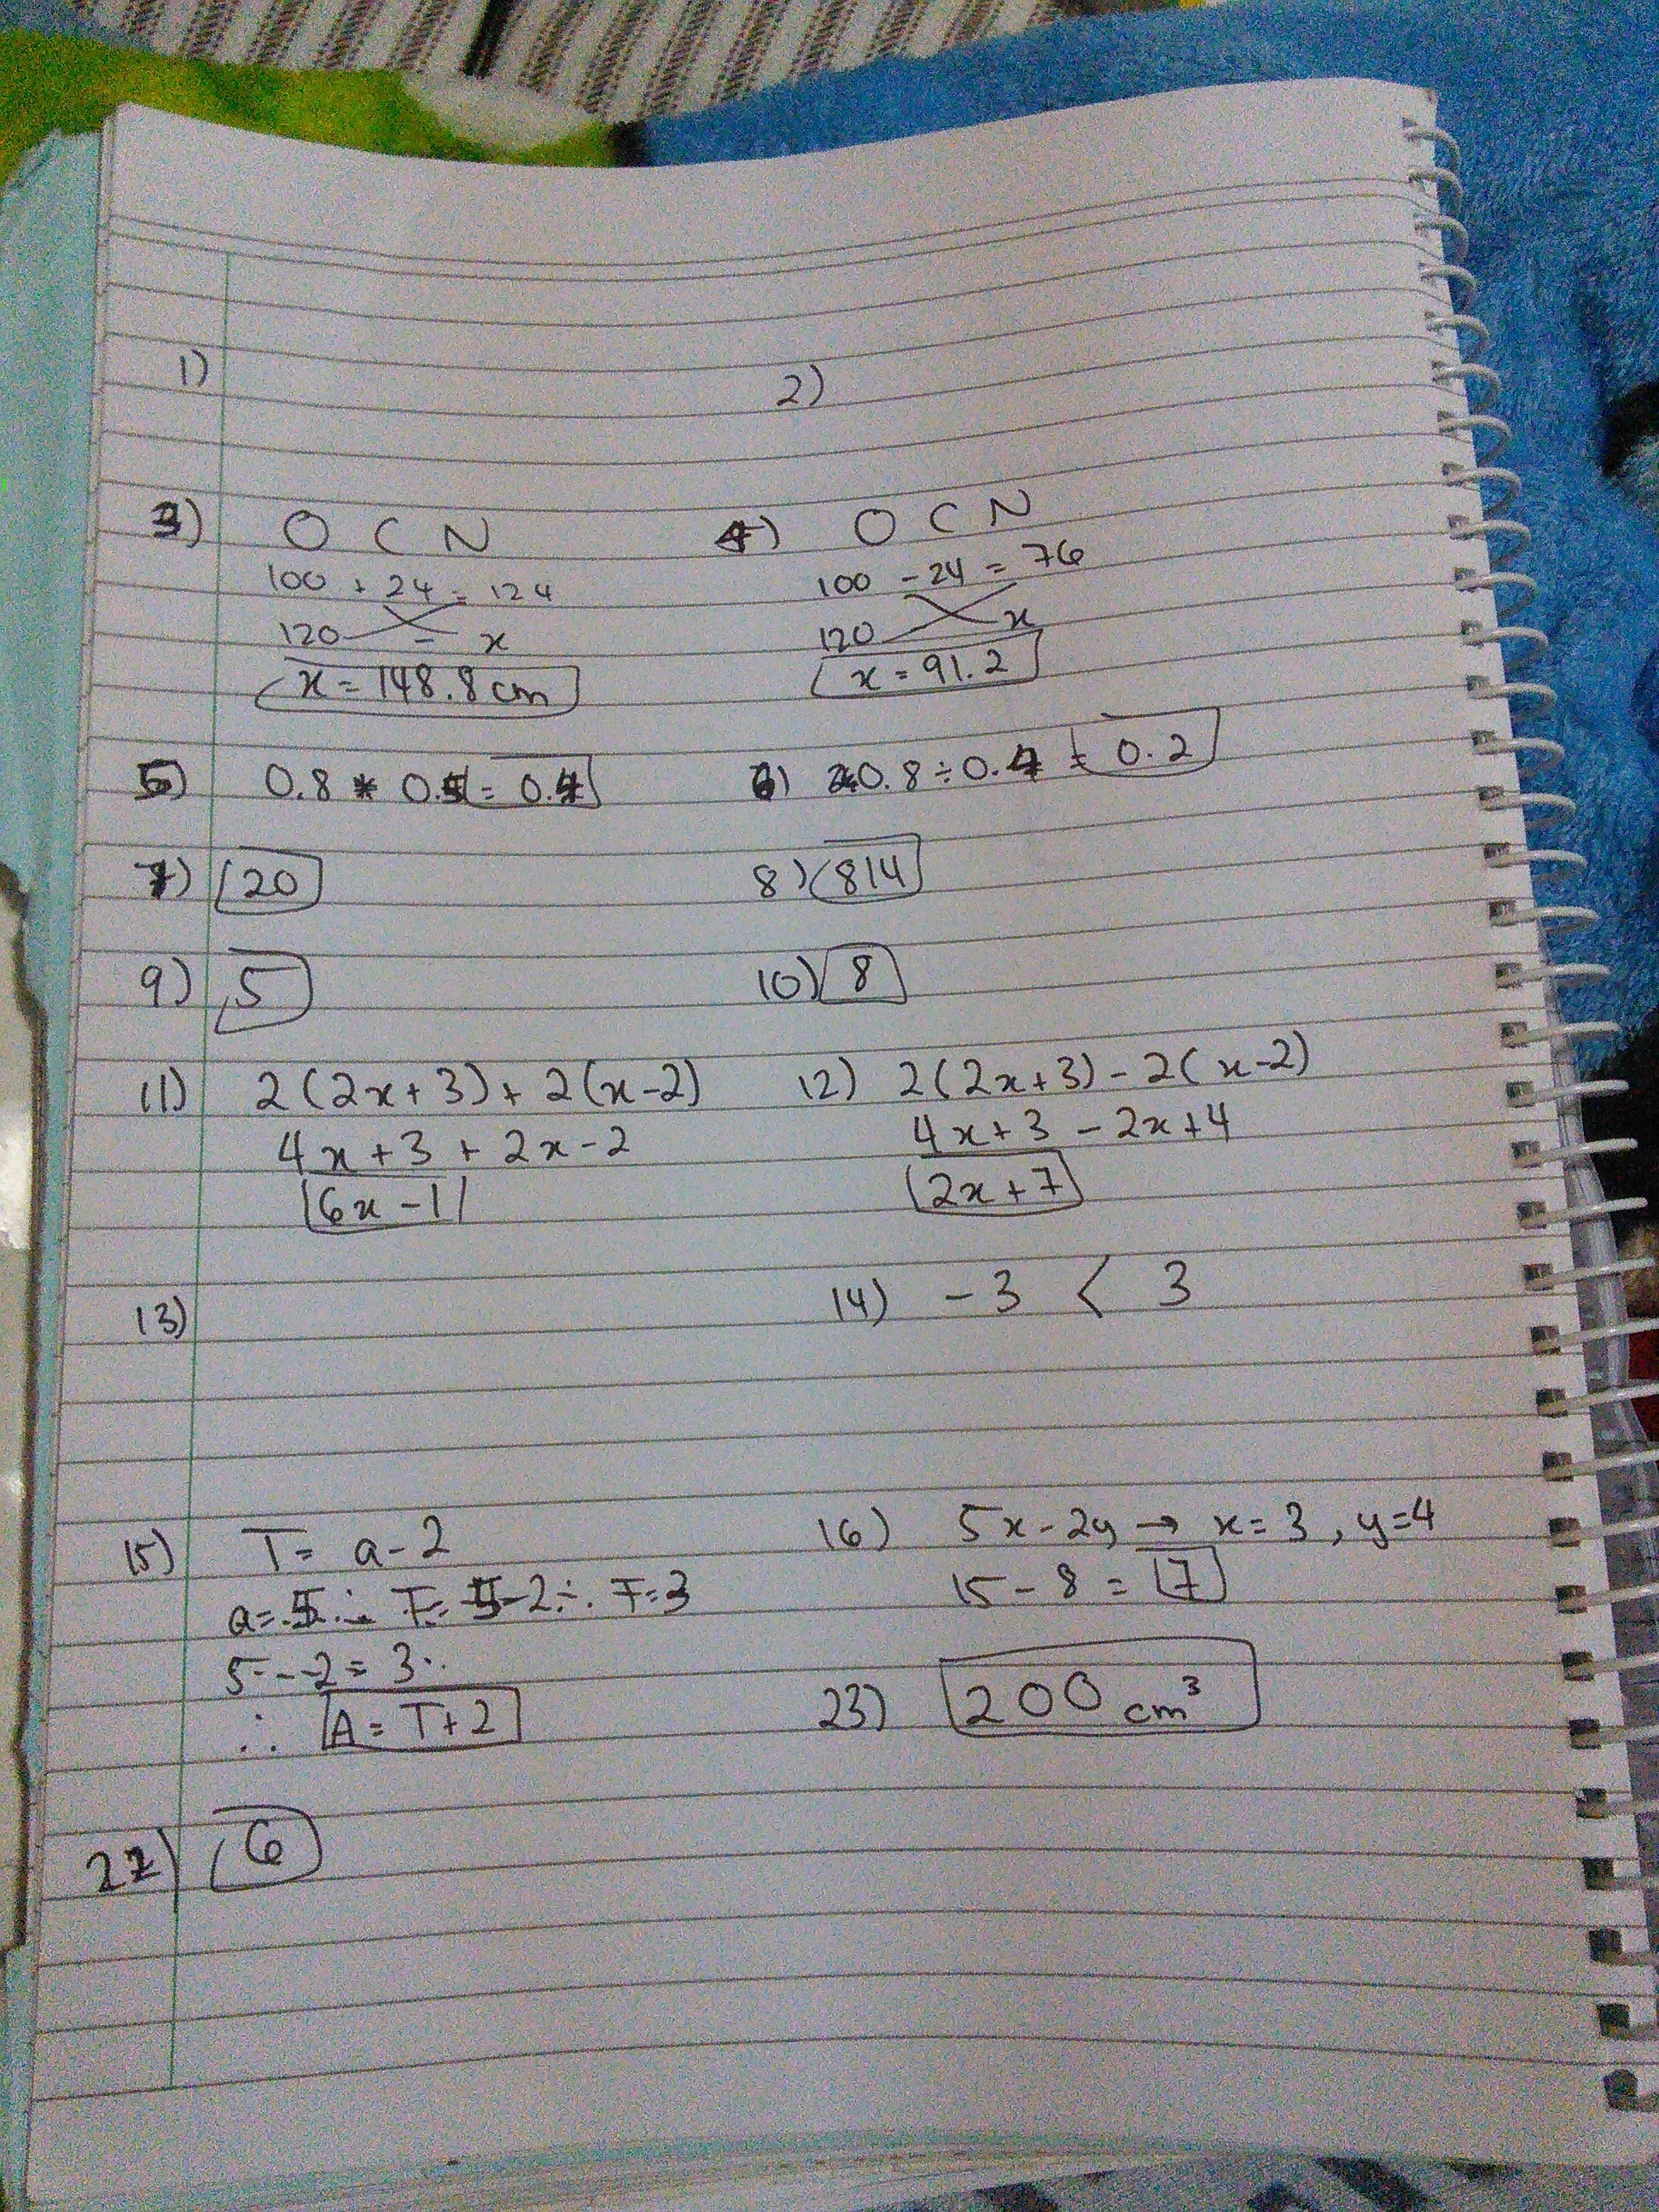 1) 2)
3) O C N 4) O C N
100 + 24 = 124 100 - 24 = 76
120 = x 120 x
x = 148.8 cm x = 91.2
5) 0.8 * 0.5 = 0.4 6) 0.8 ÷ 0.4 = 0.2
7) 20 8) 814
9) 5 10) 8
11) 2(2x+3) + 2(x-2) 12) 2(2x+3) - 2(x-2)
4x+3 + 2x-2 4x+3 - 2x+4
6x-1 2x+7
13) 14) -3 < 3
15) T = a - 2 16) 5x-2y → x=3, y=4
a = 5 ∴ T = 5-2 ∴ T=3 15 - 8 = 7
5 - -2 = 3 ∴
∴ A = T+2 23) 200 cm³
22) 6